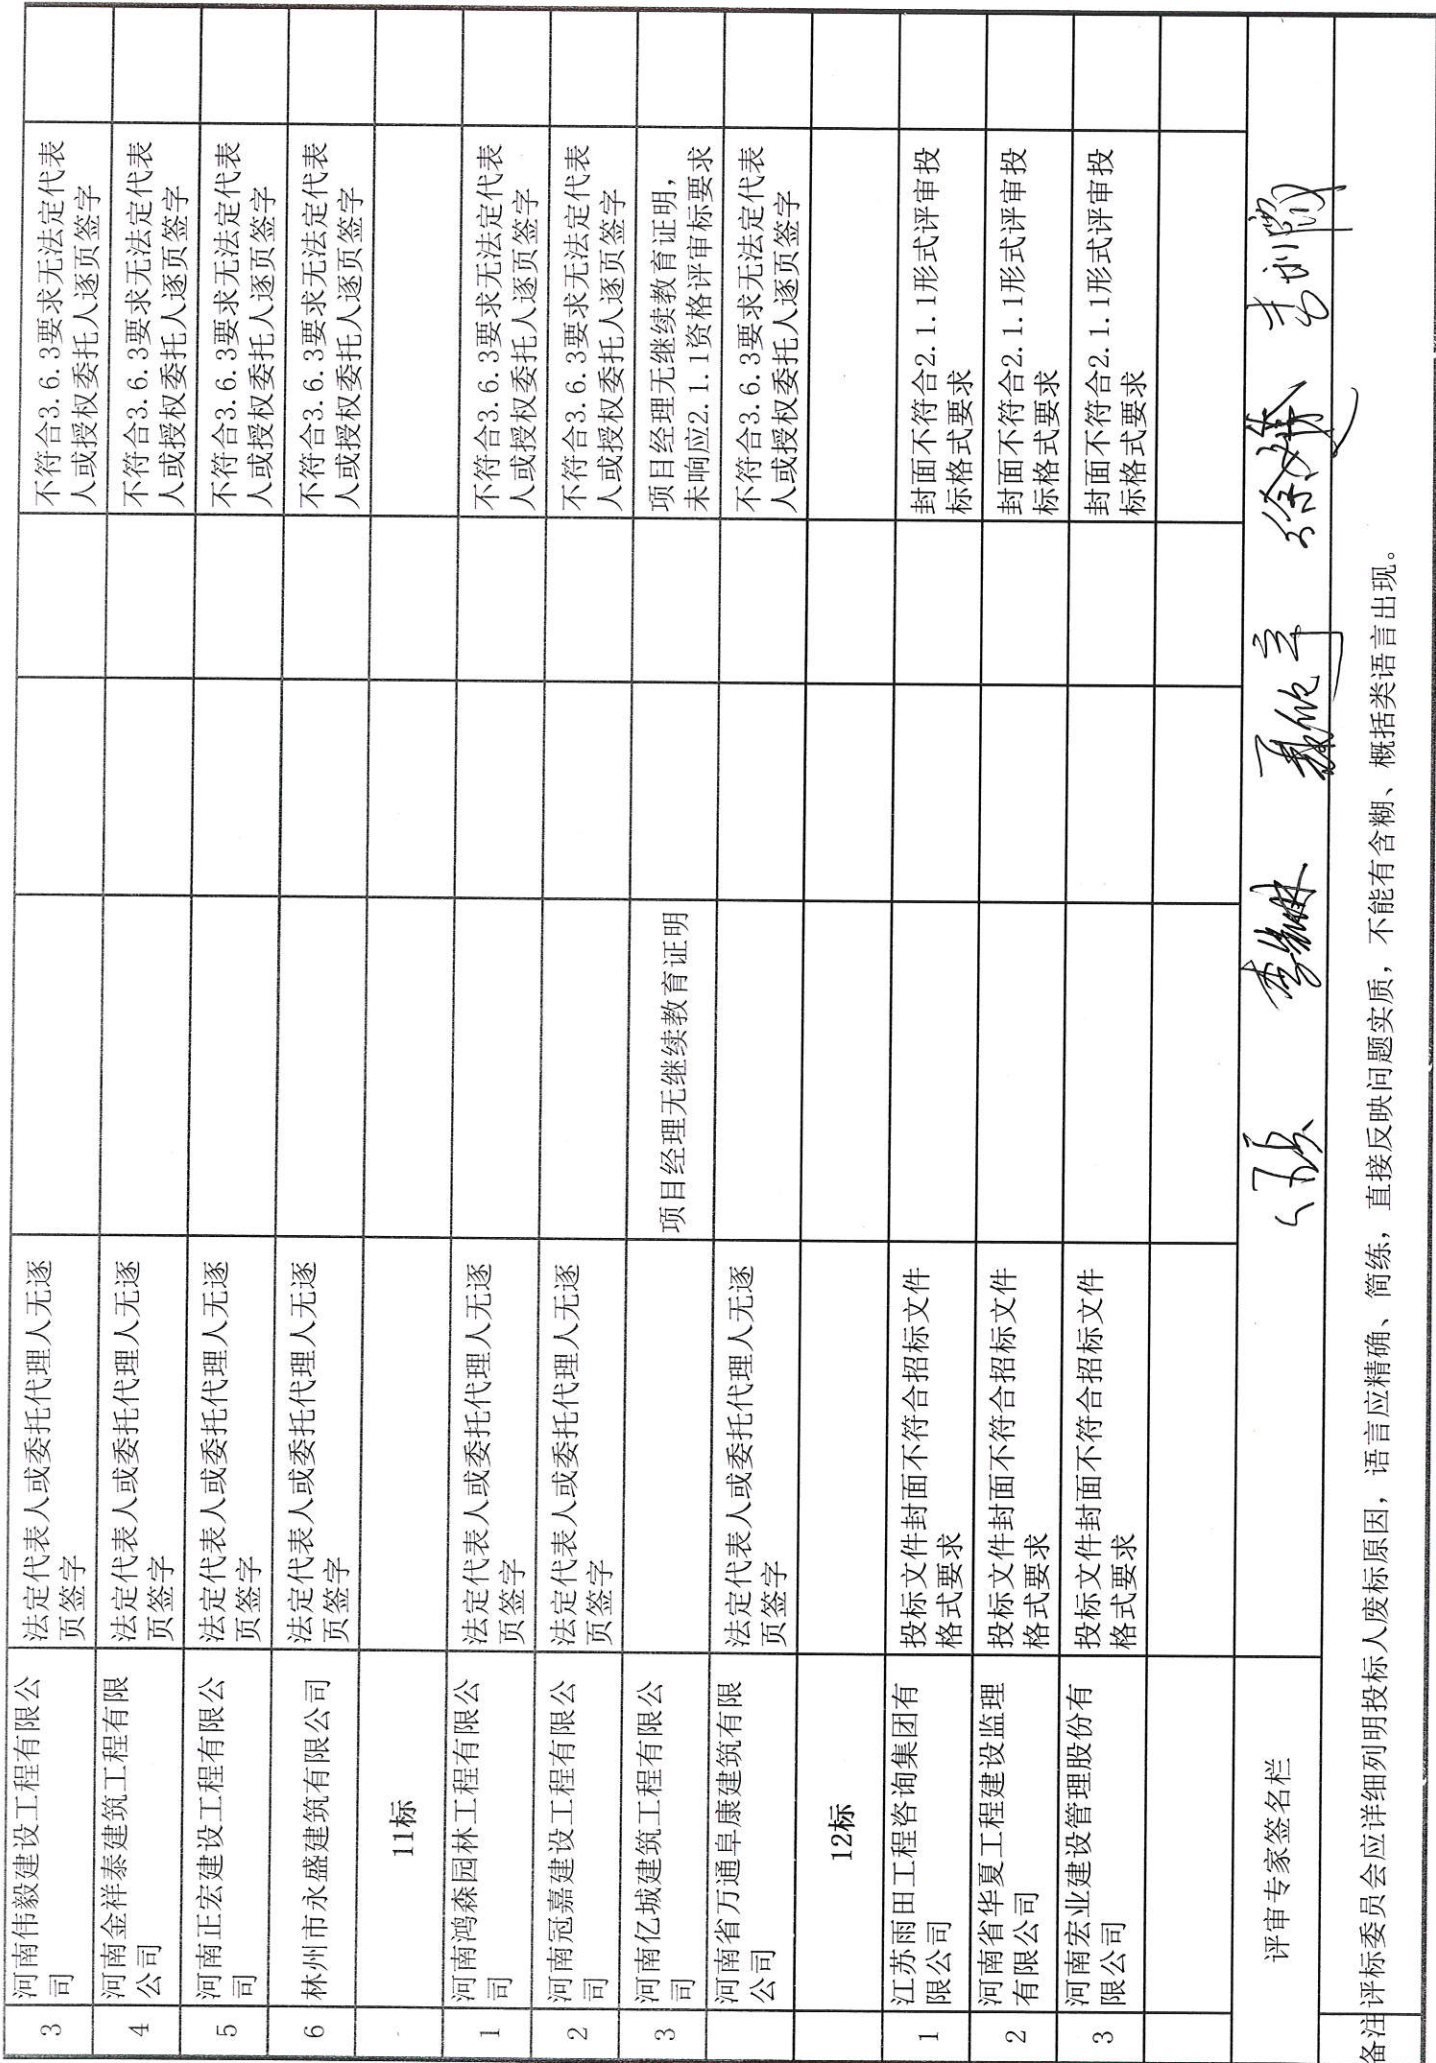 3
河南伟毅建设工程有限公
司
法定代表人或委托代理人无逐
页签字
不符合3.6.3要求无法定代表
人或授权委托人逐页签字
4
河南金祥泰建筑工程有限
公司
法定代表人或委托代理人无逐
页签字
不符合3.6.3要求无法定代表
人或授权委托人逐页签字
5
河南正宏建设工程有限公
司
法定代表人或委托代理人无逐
页签字
不符合3.6.3要求无法定代表
人或授权委托人逐页签字
6
林州市永盛建筑有限公司
法定代表人或委托代理人无逐
页签字
不符合3.6.3要求无法定代表
人或授权委托人逐页签字
11标
1
河南鸿森园林工程有限公
司
法定代表人或委托代理人无逐
页签字
不符合3.6.3要求无法定代表
人或授权委托人逐页签字
2
河南冠嘉建设工程有限公
司
法定代表人或委托代理人无逐
页签字
不符合3.6.3要求无法定代表
人或授权委托人逐页签字
3
河南亿城建筑工程有限公
司
项目经理无继续教育证明
项目经理无继续教育证明，
未响应2.1.1资格评审标要求
河南省万通阜康建筑有限
公司
法定代表人或委托代理人无逐
页签字
不符合3.6.3要求无法定代表
人或授权委托人逐页签字
12标
1
江苏雨田工程咨询集团有
限公司
投标文件封面不符合招标文件
格式要求
封面不符合2.1.1形式评审投
标格式要求
2
河南省华夏工程建设监理
有限公司
投标文件封面不符合招标文件
格式要求
封面不符合2.1.1形式评审投
标格式要求
3
河南宏业建设管理股份有
限公司
投标文件封面不符合招标文件
格式要求
封面不符合2.1.1形式评审投
标格式要求
评审专家签名栏
备注评标委员会应详细列明投标人废标原因，语言应精确、简练，直接反映问题实质，不能有含糊、概括类语言出现。